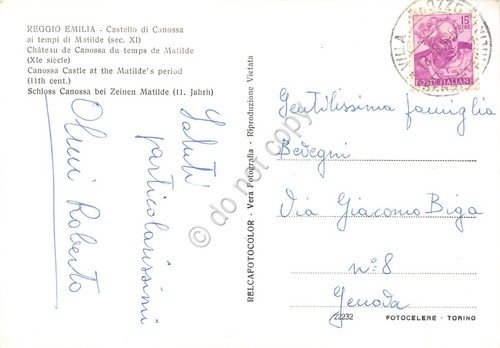 REGGIO EMILIA - Castello di Canossa
ai tempi di Matilde (sec. XI)
Château de Canossa du temps de Matilde
(XIe siècle)
Canossa Castle at the Matilde's period
(11th cent.)
Schloss Canossa bei Zeinen Matilde (11. Jahrh)
Saluti
particolarissimi
Olmi Roberto
RELCAFOTOCOLOR - Vera Fotografia - Riproduzione Vietata
15
POSTE ITALIANE
Gentilissima famiglia
Bedegni
Via Giacomo Biga
n° 8
Genova
22232
FOTOCELERE - TORINO
do not copy